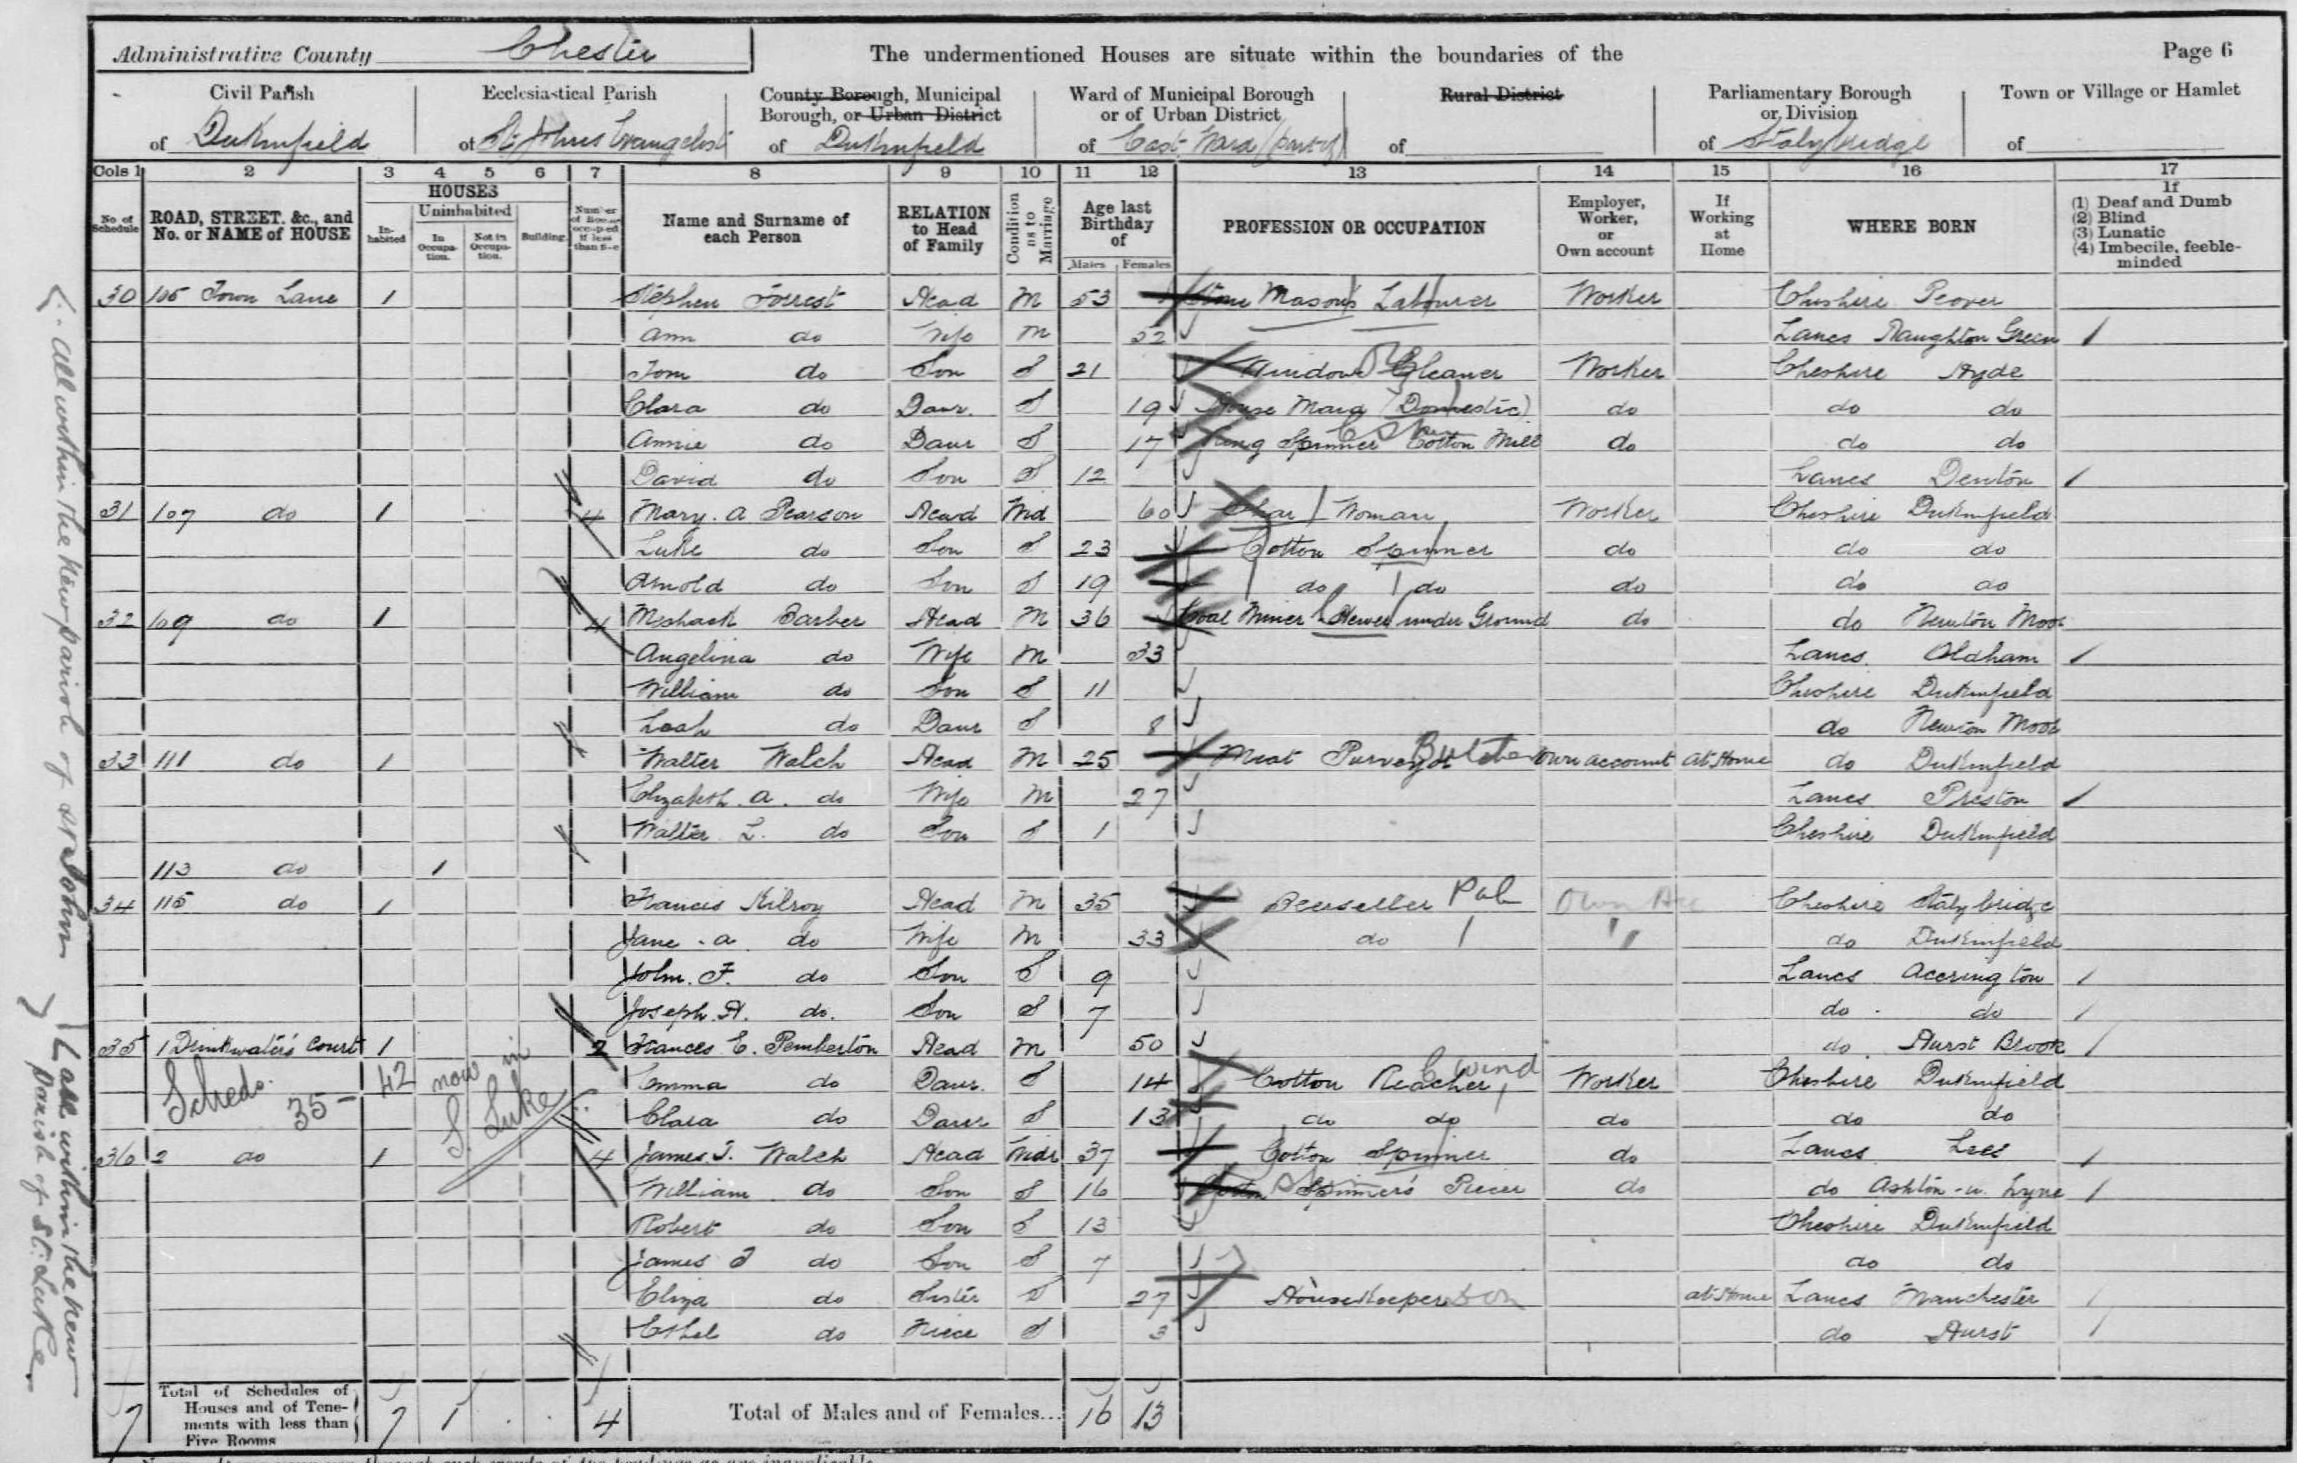 Administrative County Chester
The undermentioned Houses are situate within the boundaries of the
Page 6
Civil Parish of Dukinfield
Ecclesiastical Parish of St Johns Evangelist
County Borough, Municipal Borough, or Urban District of Dukinfield
Ward of Municipal Borough or of Urban District of East Ward (part of)
Rural District of
Parliamentary Borough or Division of Stalybridge
Town or Village or Hamlet of
Cols 1 2 3 4 5 6 7 8 9 10 11 12 13 14 15 16 17
No of Schedule
ROAD, STREET, &c., and No. or NAME of HOUSE
HOUSES
Inhabited
Uninhabited
In Occupation.
Not in Occupation.
Building.
Number of Rooms occupied if less than five
Name and Surname of each Person
RELATION to Head of Family
Condition as to Marriage
Age last Birthday of
Males Females
PROFESSION OR OCCUPATION
Employer, Worker, or Own account
If Working at Home
WHERE BORN
If
(1) Deaf and Dumb
(2) Blind
(3) Lunatic
(4) Imbecile, feeble-minded
30 105 Town Lane 1 Stephen Forrest Head M 53 Stone Mason's Labourer Worker Cheshire Peover
Ann do Wife M 52 Lancs Haughton Green
Tom do Son S 21 Window Cleaner Worker Cheshire Hyde
Clara do Daur. S 19 House Maid (Domestic) do do do
Annie do Daur S 17 Ring Spinner Cotton Mill do do do
David do Son S 12 Lancs Denton
31 107 do 1 4 Mary. A Pearson Head Wid 60 Char Woman Worker Cheshire Dukinfield
Luke do Son S 23 Cotton Spinner do do do
Arnold do Son S 19 do do do do do
32 109 do 1 4 Meshack Barber Head M 36 Coal Miner Hewer under Ground do do Newton Moor
Angelina do Wife M 33 Lancs. Oldham
William do Son S 11 Cheshire Dukinfield
Leah do Daur S 8 do Newton Moor
33 111 do 1 Walter Walch Head M 25 Meat Purveyor Butcher Own account at Home do Dukinfield
Elizabeth. A. do Wife M 27 Lancs Preston
Walter L. do Son S 1 Cheshire Dukinfield
113 do 1
34 115 do 1 Francis Kilroy Head M 35 Beerseller Pub Own Acc Cheshire Stalybridge
Jane. A. do Wife M 33 do " do Dukinfield
John. F. do Son S 9 Lancs Accrington
Joseph. H. do. Son S 7 do. do
35 1 Drinkwater's Court 1 2 Frances E. Pemberton Head M 50 do Hurst Brook
Emma do Daur. S 14 Cotton Reacher, C Wind Worker Cheshire Dukinfield
Clara do Daur S 13 do do do do do
36 2 do 1 4 James. T. Walch Head Widr 37 Cotton Spinner do Lancs Lees
William do Son S 16 Cotton Spinner's Piecer do do Ashton-u. Lyne
Robert do Son S 13 Cheshire Dukinfield
James T do Son S 7 do do
Eliza do Sister S 27 Housekeeper Dom at Home Lancs Manchester
Ethel do Niece S 3 do Hurst
Scheds. 35-42 now in S. Luke
All within the New parish of St John
All within the new parish of St: Luke
7 Total of Schedules of Houses and of Tenements with less than Five Rooms 7 1 4
Total of Males and of Females... 16 13